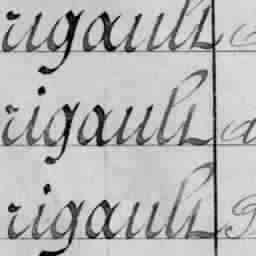 rigault
rigault
rigault